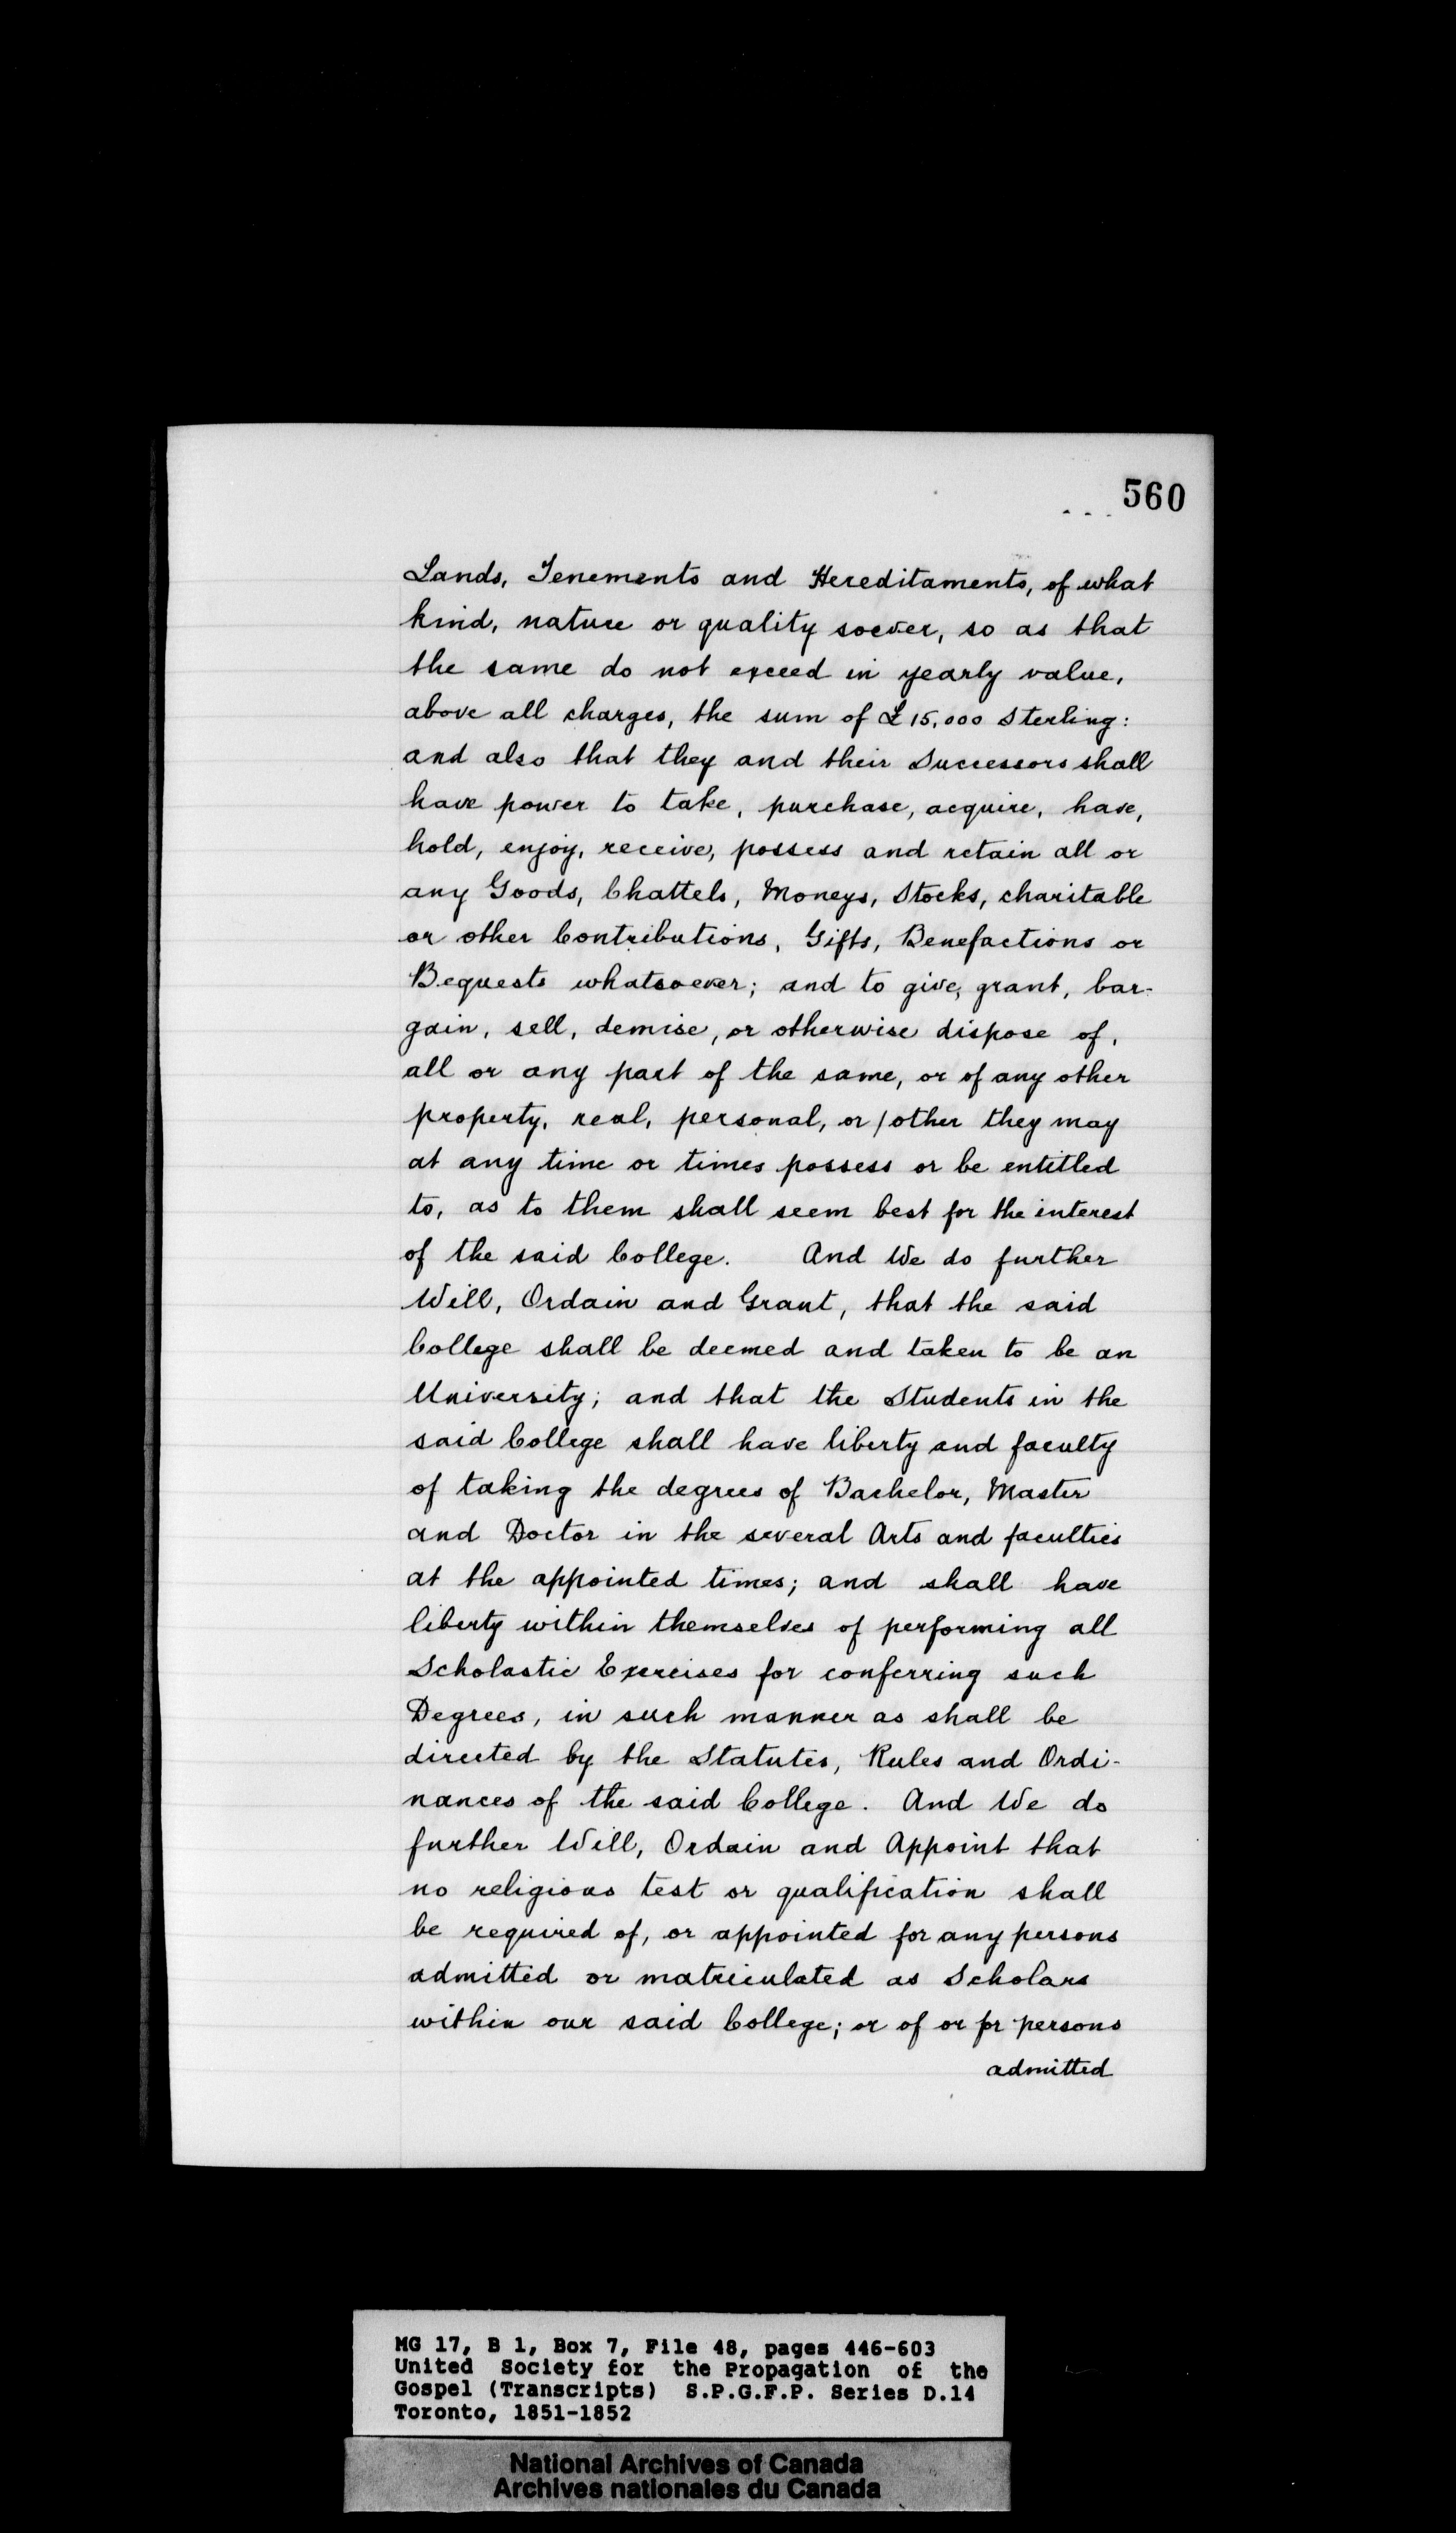 560
Lands, Tenements and Hereditaments, of what
kind, nature or quality soever, so as that
the same do not exceed in yearly value,
above all charges, the sum of £15,000 Sterling:
and also that they and their Successors shall
have power to take, purchase, acquire, have,
hold, enjoy, receive, possess and retain all or
any Goods, Chattels, Moneys, Stocks, charitable
or other Contributions, Gifts, Benefactions or
Bequests whatsoever; and to give, grant, bar-
gain, sell, demise, or otherwise dispose of,
all or any part of the same, or of any other
property, real, personal, or / other they may
at any time or times possess or be entitled
to, as to them shall seem best for the interest
of the said College. And We do further
Will, Ordain and Grant, that the said
College shall be deemed and taken to be an
University; and that the Students in the
said College shall have liberty and faculty
of taking the degrees of Bachelor, Master
and Doctor in the several Arts and faculties
at the appointed times; and shall have
liberty within themselves of performing all
Scholastic Exercises for conferring such
Degrees, in such manner as shall be
directed by the Statutes, Rules and Ordi-
nances of the said College. And We do
further Will, Ordain and Appoint that
no religious test or qualification shall
be required of, or appointed for any persons
admitted or matriculated as Scholars
within our said College; or of or for persons
admitted
MG 17, B 1, Box 7, File 48, pages 446-603
United Society for the Propagation of the
Gospel (Transcripts) S.P.G.F.P. Series D.14
Toronto, 1851-1852
National Archives of Canada
Archives nationales du Canada